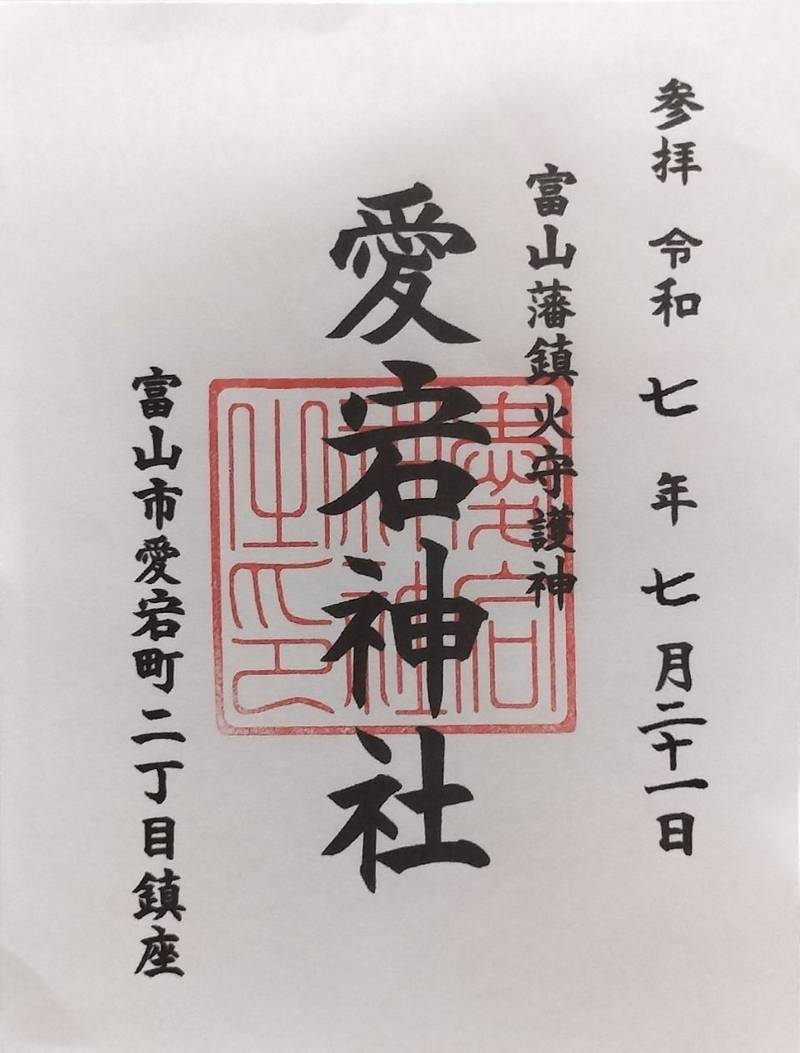 参拝 令和 七 年 七 月二十一日
富山藩鎮火守護神
愛宕神社
愛宕神社之印
富山市愛宕町二丁目鎮座